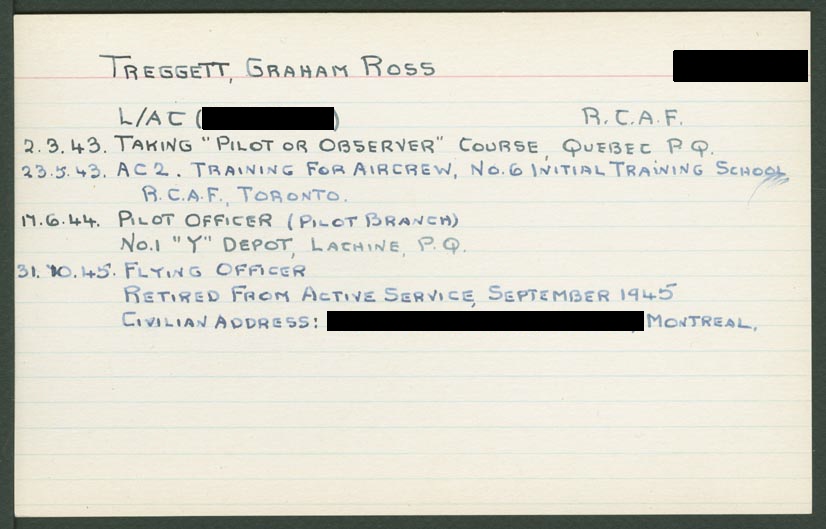 TREGGETT, GRAHAM ROSS
L/AC ( ) R.C.A.F.
2.3.43. TAKING "PILOT OR OBSERVER" COURSE, QUEBEC P.Q.
23.5.43. AC2. TRAINING FOR AIRCREW, NO.6 INITIAL TRAINING SCHOOL
R.C.A.F., TORONTO.
17.6.44. PILOT OFFICER (PILOT BRANCH)
NO.1 "Y" DEPOT, LACHINE, P.Q.
31.10.45. FLYING OFFICER
RETIRED FROM ACTIVE SERVICE, SEPTEMBER 1945
CIVILIAN ADDRESS: MONTREAL,